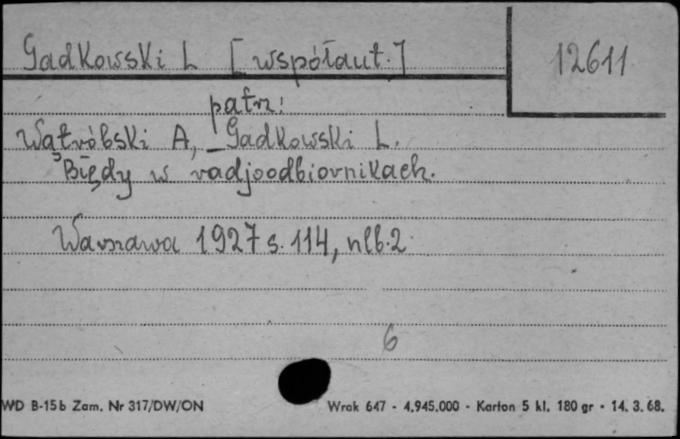 Gadkowski L [współaut.]
12611
patrz:
Wątróbski A, Gadkowski L.
Błędy w radjoodbiornikach.
Warszawa 1927 s. 114, nlb. 2
6
WD B-15b Zam. Nr 317/DW/ON
Wrak 647 - 4.945.000 - Karton 5 kl. 180 gr - 14. 3. 68.